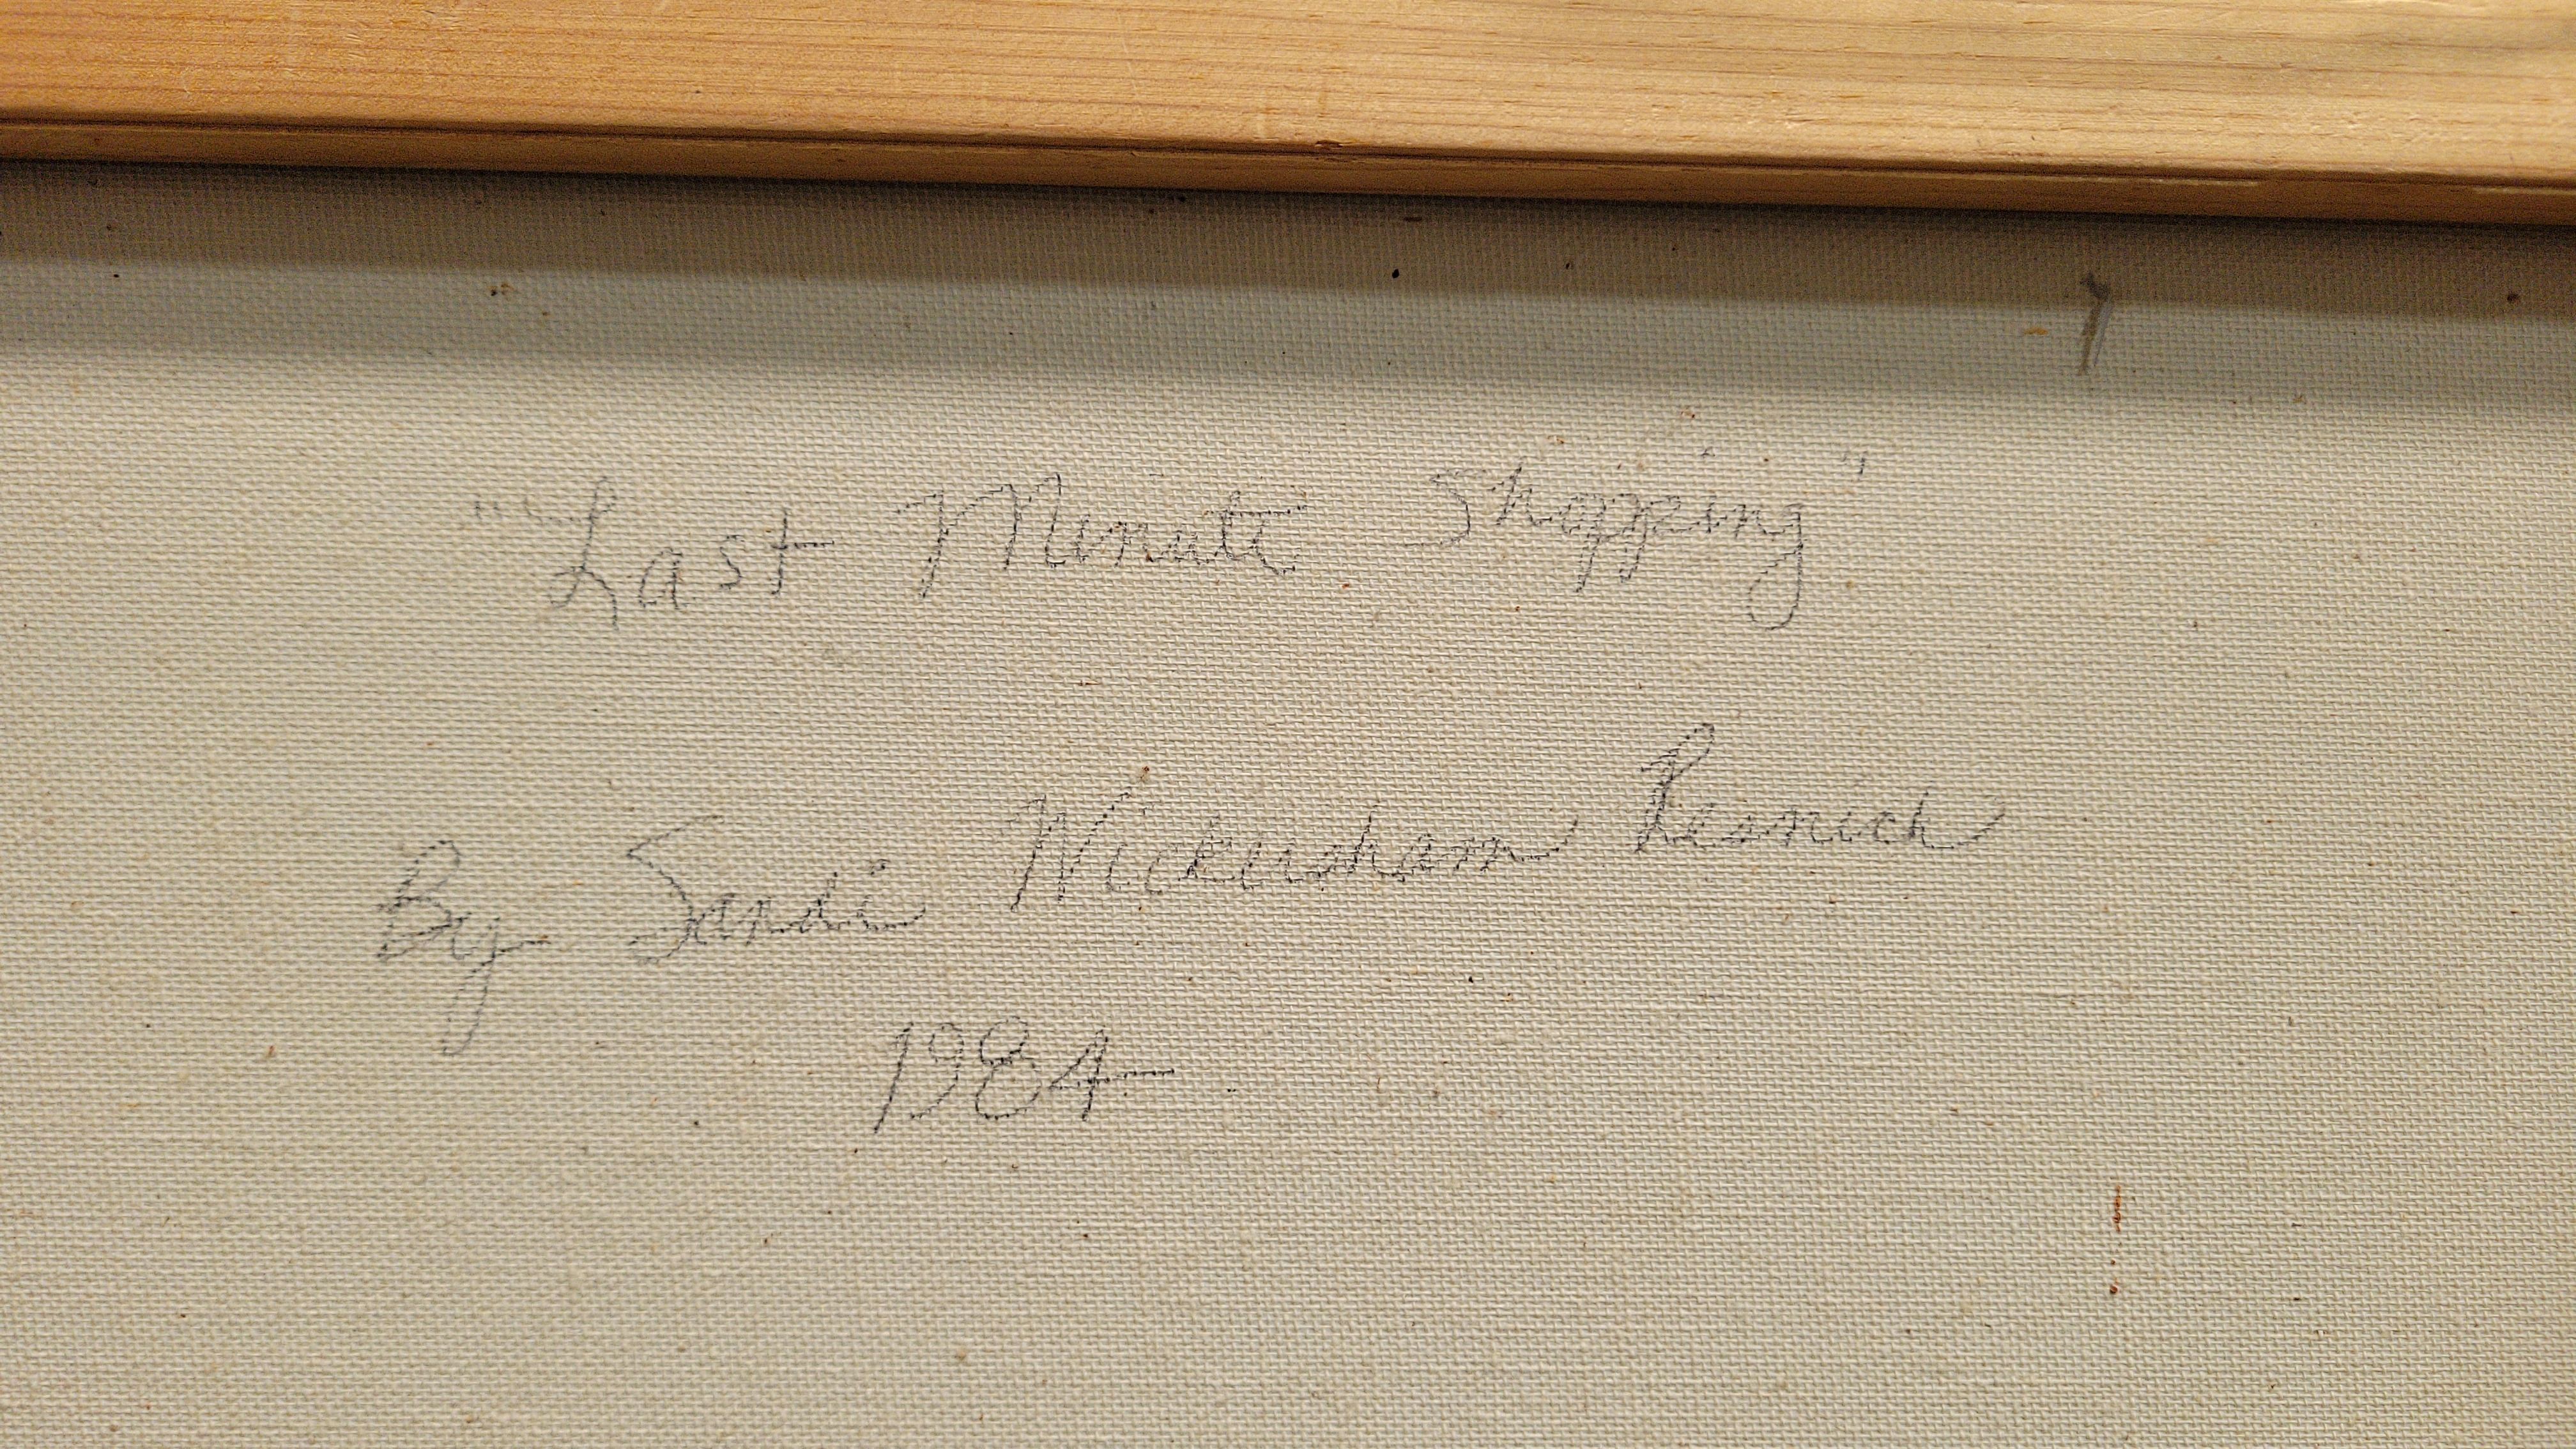 "Last Minute Shopping"
By Sandi Wickersham Resnick
1984